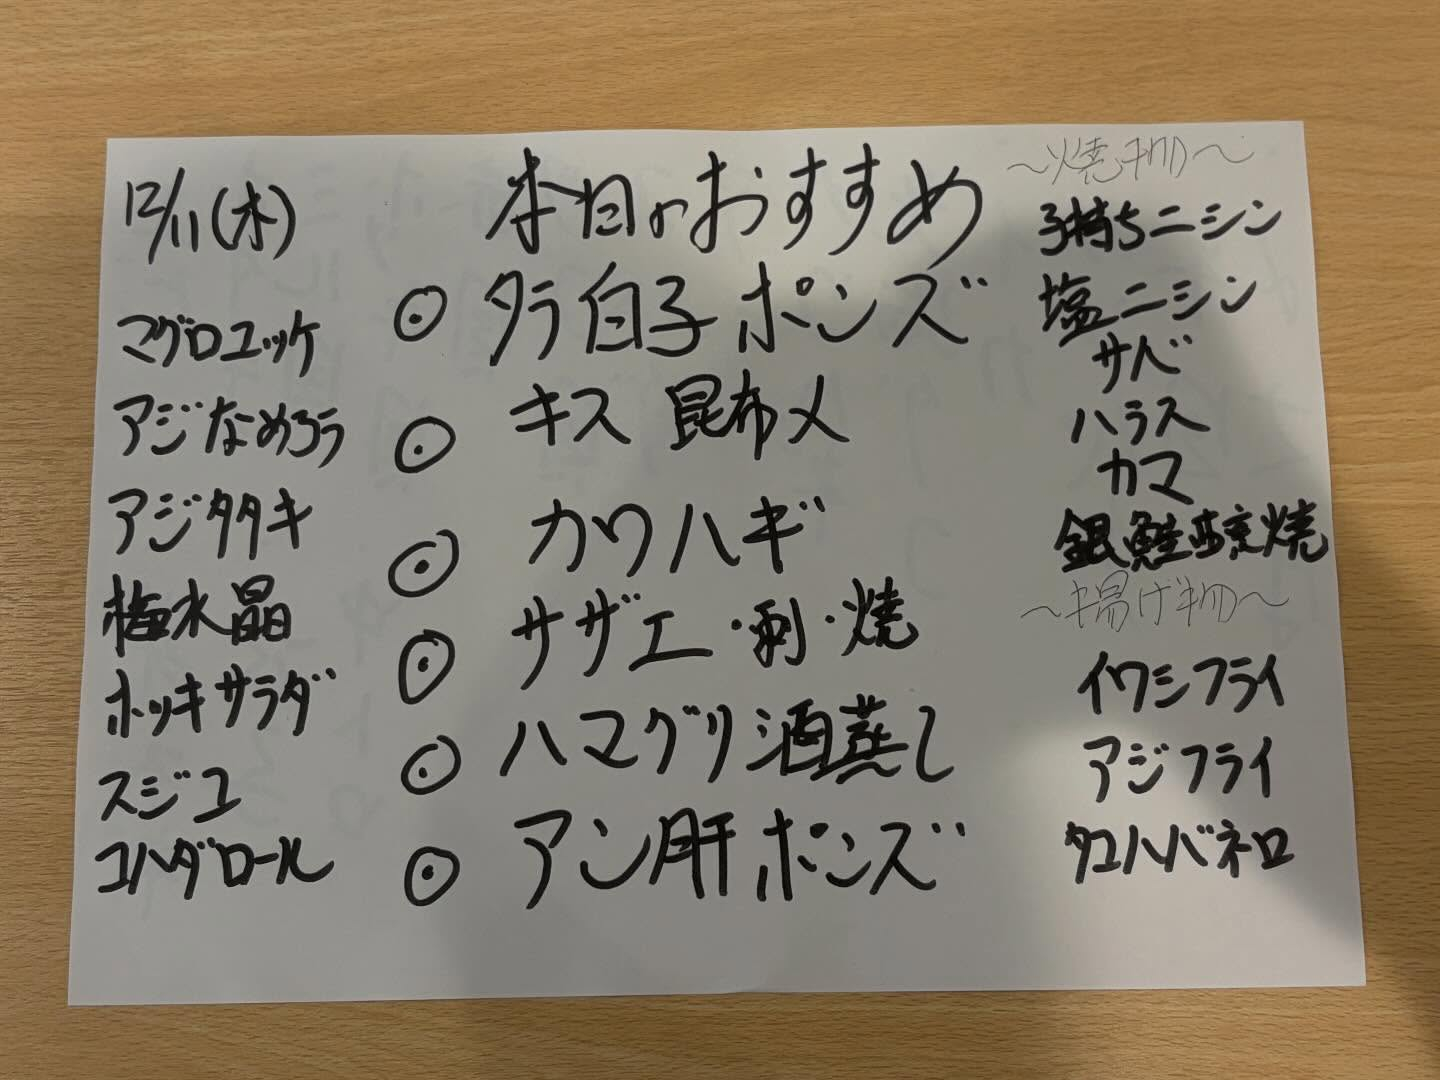 12/11(木)
マグロユッケ
アジなめろう
アジタタキ
梅水晶
ホッキサラダ
スジコ
コハダロール
本日のおすすめ
◎ タラ白子ポンズ
◎ キス 昆布〆
◎ カワハギ
◎ サザエ・刺・焼
◎ ハマグリ酒蒸し
◎ アン肝ポンズ
〜焼物〜
子持ちニシン
塩ニシン
サバ
ハラス
カマ
銀鮭 焼
〜揚げ物〜
イワシフライ
アジフライ
タコハバネロ